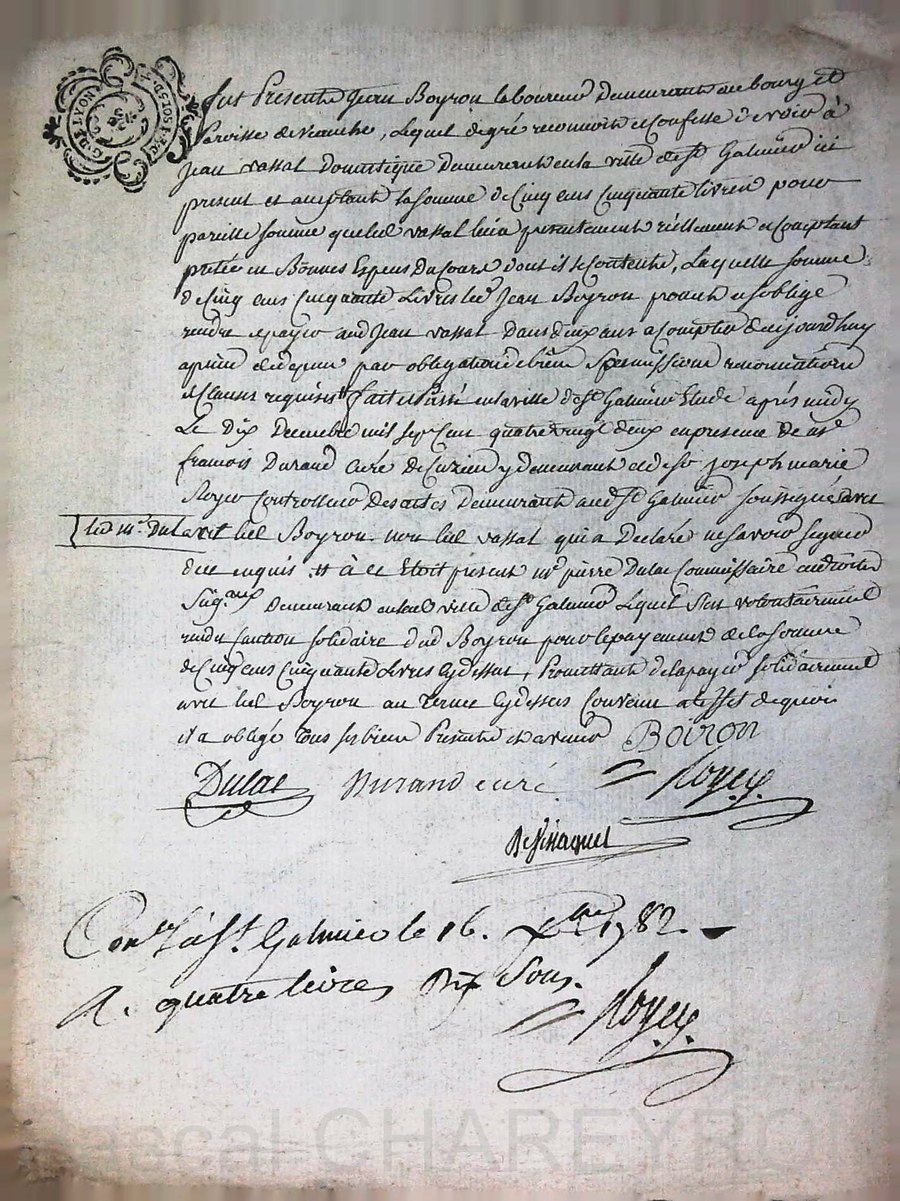 fut Présent Jean Boyron laboureur demeurant au bourg et
Paroisse de Veauche, Lequel de gré reconnoit et Confesse devoir à
Jean vassal Domestique Demeurant en la ville de st Galmier ici
present et acceptant la somme de Cinq cens Cinquante livres pour
pareille somme que led vassal lui a presentement réellement et Comptant
prêtée en Bonnes Especes du Cours dont il se Contente, Laquelle somme
de Cinq cens Cinquante Livres led Jean Boyron promet et s'oblige
rendre et payer aud Jean vassal Dans deux ans a Compter d'aujourd'huy
a peine de depens par obligation de biens soumissions renonciations
et Clauses requises fait et Passé en la ville de st Galmier Etude après midy
Le Dix Decembre mil sept Cent quatre vingt deux en presence de mre
francois Durand Curé de Cuzieu y demeurant et de sr joseph marie
Royer Controlleur des actes Demeurant aud st Galmier soussignés avec
led me Dulac et led Boyron non led vassal qui a Declaré ne savoir signer
de ce enquis # à ce Etoit present me pierre Dulac Commissaire aux droits
Seig.aux Demeurant en lad ville de st Galmier Lequel s'est volontairement
rendu Caution solidaire dud Boyron pour le payement de la somme
de Cinq cens Cinquante Livres Cydessus, Promettant de la payer solidairement
avec led Boyron au terme Cydessus Convenu a l'effet de quoi
il a obligé tous ses biens Presents et avenir BOIRON
Dulac Durand curé Royer
Con.lé à st. Galmier le 16. Xbre 1782.
R. quatre livres Dix Sous.
Royer
Pascal CHAREYRON